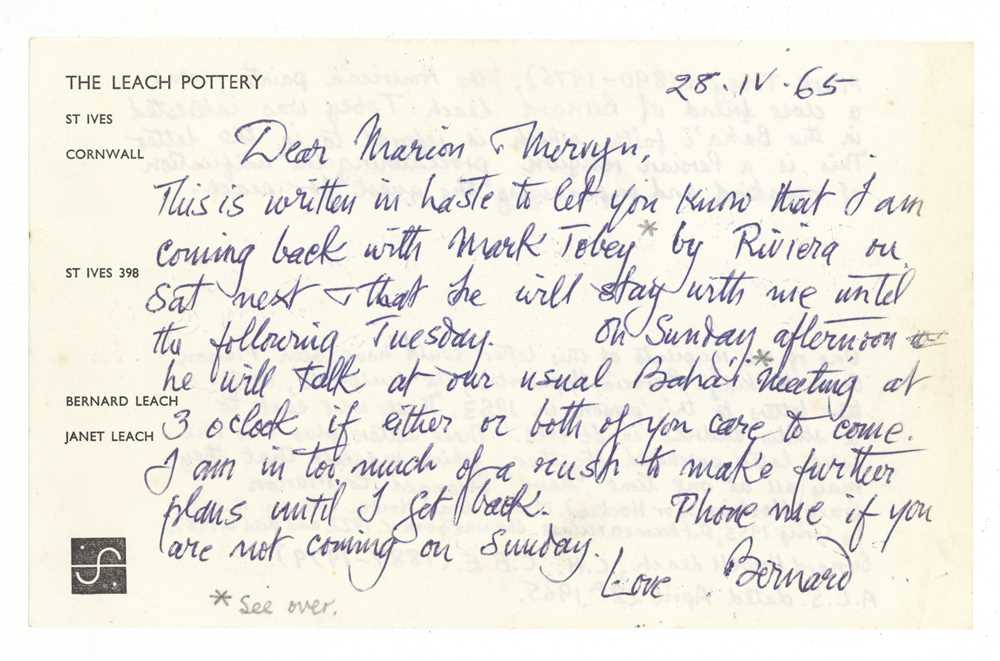 THE LEACH POTTERY
ST IVES
CORNWALL
ST IVES 398
BERNARD LEACH
JANET LEACH
28 . IV . 65
Dear Marion & Mervyn,
This is written in haste to let you know that I am
coming back with Mark Tobey * by Riviera on
Sat next & that he will stay with me until
the following Tuesday. On Sunday afternoon
he will talk at our usual Bahai * meeting at
3 oclock if either or both of you care to come.
I am in too much of a rush to make further
plans until I get back. Phone me if you
are not coming on Sunday.
Love Bernard
* See over.